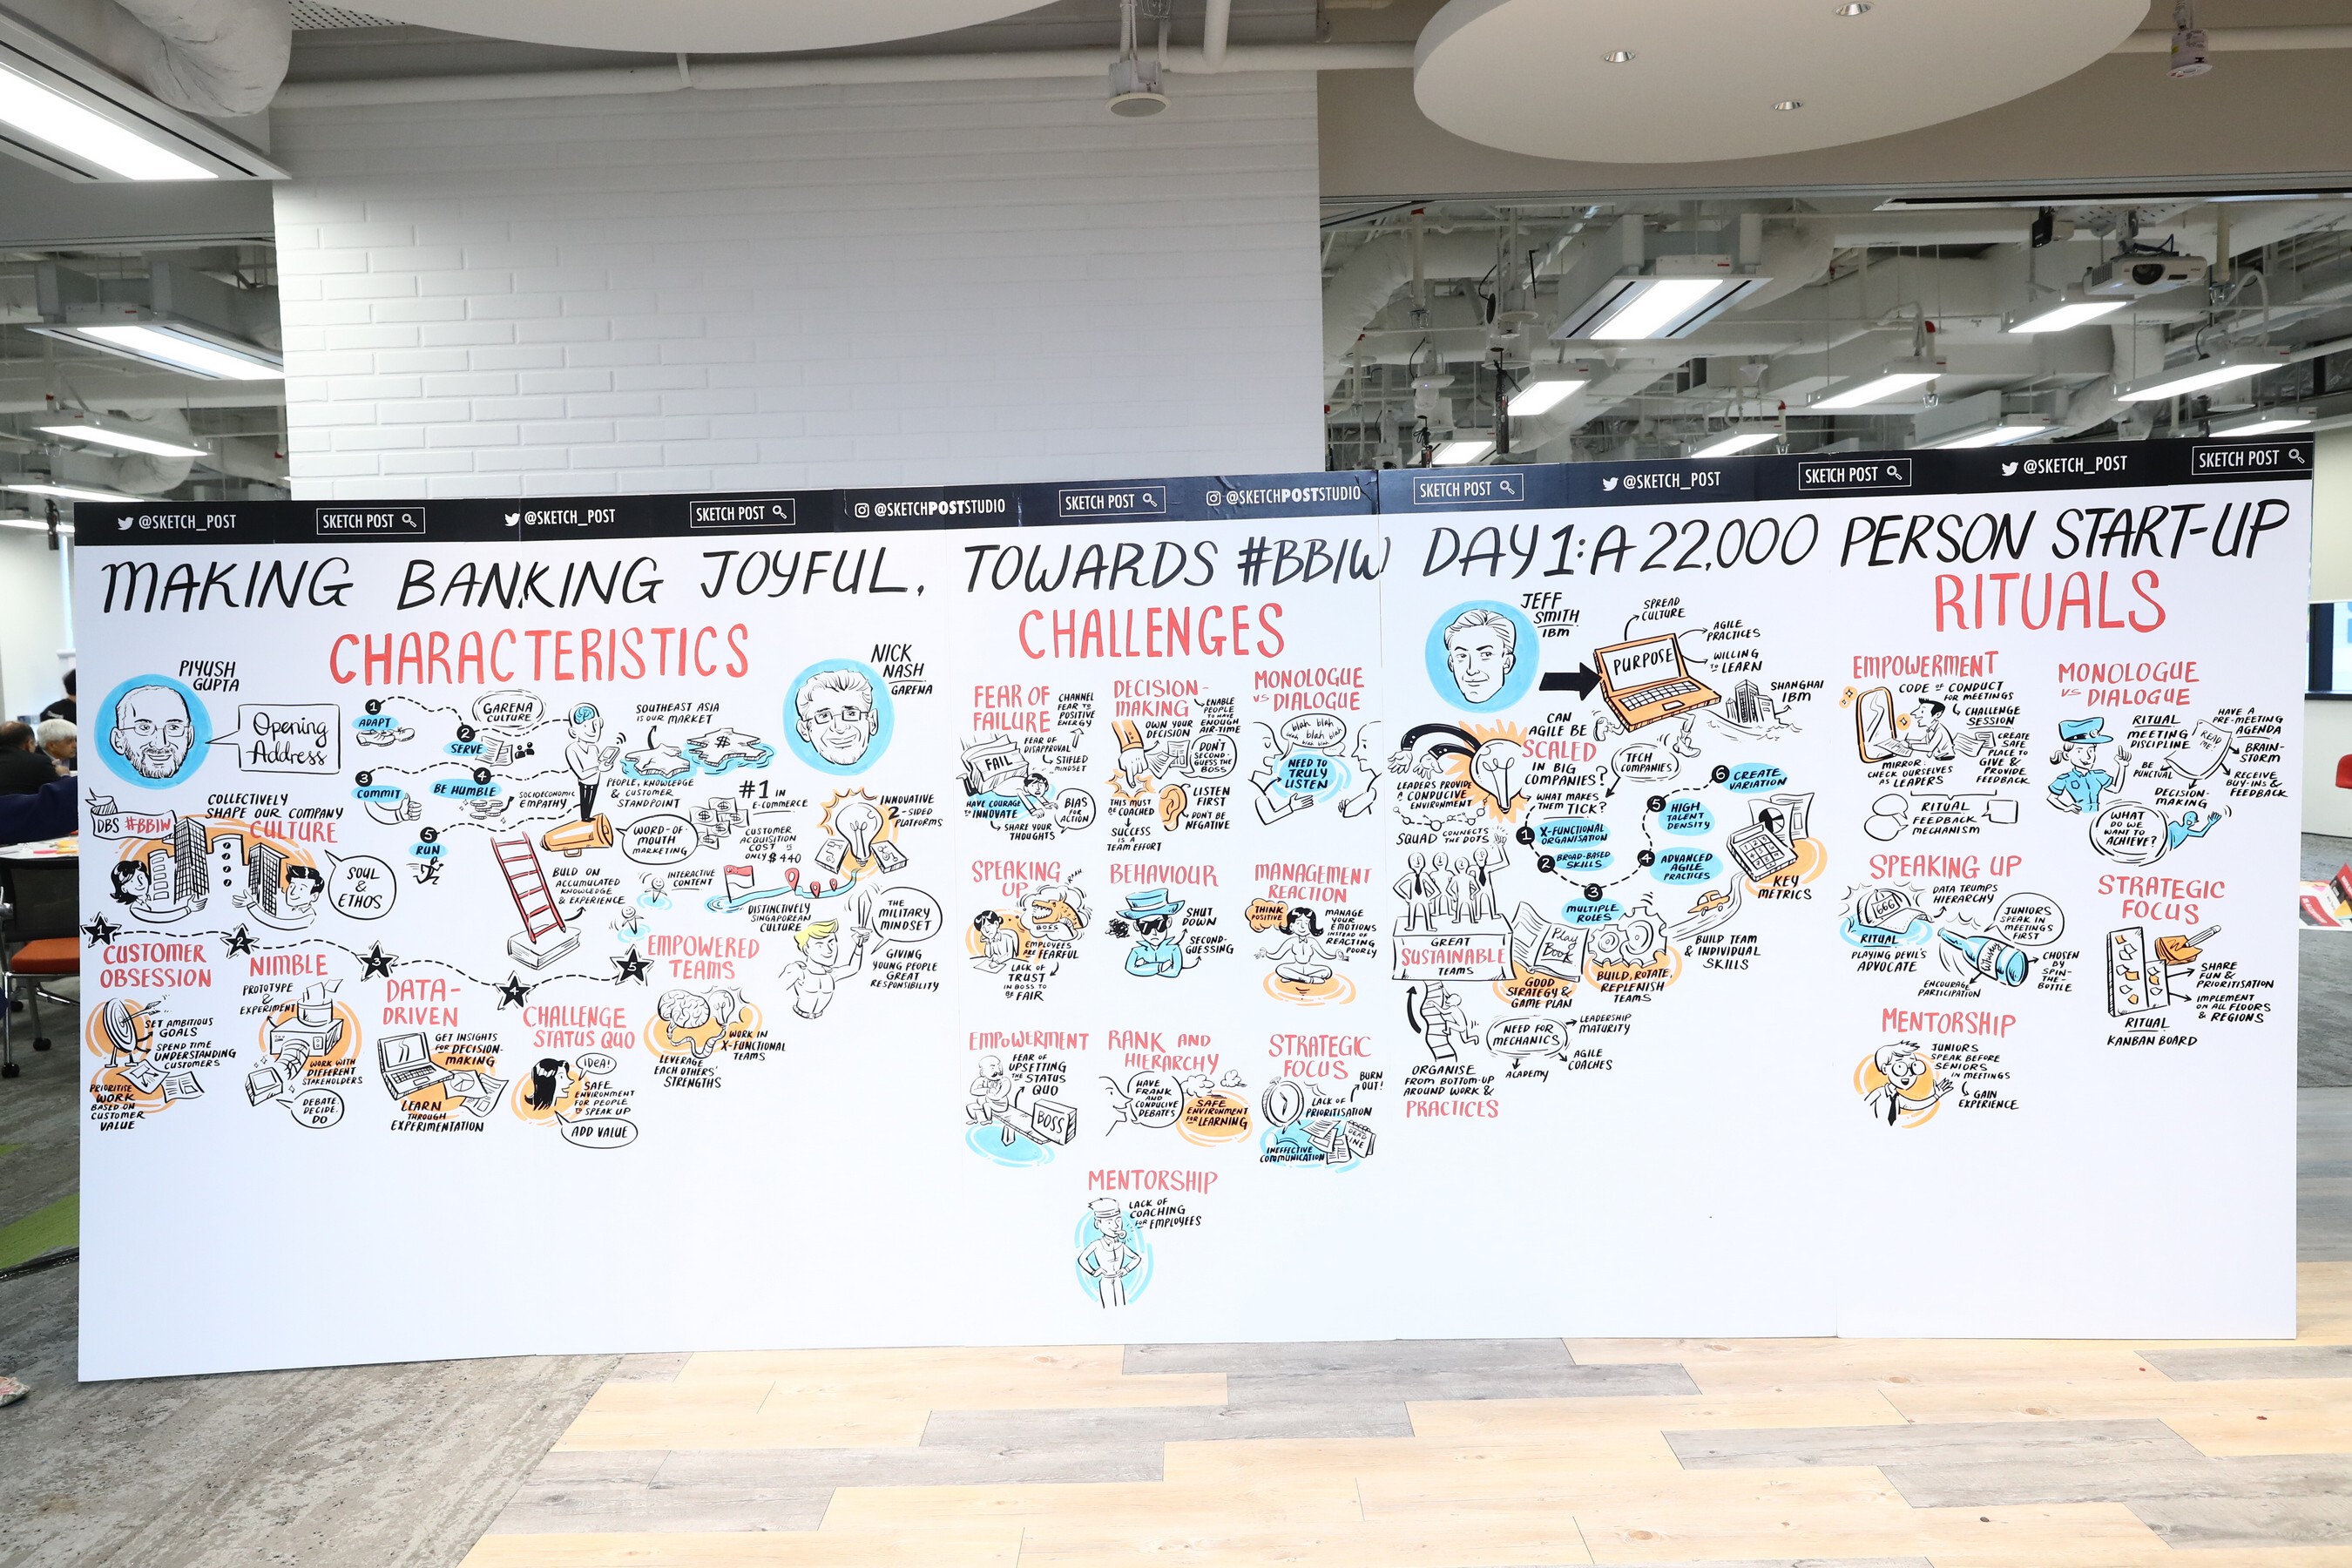 @SKETCH_POST
SKETCH POST
@SKETCH_POST
SKETCH POST
@SKETCHPOSTSTUDIO
SKETCH POST
@SKETCHPOSTSTUDIO
SKETCH POST
@SKETCH_POST
SKETCH POST
@SKETCH_POST
SKETCH POST
MAKING BANKING JOYFUL, TOWARDS #BBIW DAY 1: A 22,000 PERSON START-UP
CHARACTERISTICS
PIYUSH
GUPTA
Opening
Address
1
ADAPT
2
SERVE
3
COMMIT
4
BE HUMBLE
5
RUN
GARENA
CULTURE
SOCIOECONOMIC
EMPATHY
SOUTHEAST ASIA
IS OUR MARKET
PEOPLE, KNOWLEDGE
& CUSTOMER
STANDPOINT
NICK
NASH
GARENA
DBS #BBIW
COLLECTIVELY
SHAPE OUR COMPANY
CULTURE
SOUL
&
ETHOS
WORD-OF-
MOUTH
MARKETING
#1 IN
E-COMMERCE
CUSTOMER
ACQUISITION
COST IS
ONLY $440
INNOVATIVE
2-SIDED
PLATFORMS
BUILD ON
ACCUMULATED
KNOWLEDGE
& EXPERIENCE
INTERACTIVE
CONTENT
DISTINCTIVELY
SINGAPOREAN
CULTURE
THE
MILITARY
MINDSET
GIVING
YOUNG PEOPLE
GREAT
RESPONSIBILITY
1
CUSTOMER
OBSESSION
SET AMBITIOUS
GOALS
SPEND TIME
UNDERSTANDING
CUSTOMERS
PRIORITISE
WORK
BASED ON
CUSTOMER
VALUE
2
NIMBLE
PROTOTYPE
&
EXPERIMENT
WORK WITH
DIFFERENT
STAKEHOLDERS
DEBATE,
DECIDE,
DO
3
DATA-
DRIVEN
GET INSIGHTS
FOR DECISION-
MAKING
LEARN
THROUGH
EXPERIMENTATION
4
CHALLENGE
STATUS QUO
IDEA!
SAFE
ENVIRONMENT
FOR PEOPLE
TO SPEAK UP
ADD VALUE
5
EMPOWERED
TEAMS
WORK IN
X-FUNCTIONAL
TEAMS
LEVERAGE
EACH OTHERS'
STRENGTHS
CHALLENGES
FEAR OF
FAILURE
CHANNEL
FEAR TO
POSITIVE
ENERGY
FEAR OF
DISAPPROVAL
STIFLED
MINDSET
FAIL
HAVE COURAGE
TO INNOVATE
BIAS
FOR
ACTION
SHARE YOUR
THOUGHTS
DECISION-
MAKING
ENABLE
PEOPLE
TO HAVE
ENOUGH
AIR-TIME
OWN YOUR
DECISION
DON'T
SECOND-
GUESS THE
BOSS
THIS MUST
BE COACHED
LISTEN
FIRST
DON'T BE
NEGATIVE
SUCCESS
IS A
TEAM EFFORT
MONOLOGUE
VS DIALOGUE
blah blah
blah blah
blah blah blah
NEED TO
TRULY
LISTEN
SPEAKING
UP
BOSS
EMPLOYEES
ARE FEARFUL
LACK OF
TRUST
IN BOSS TO
BE FAIR
BEHAVIOUR
SHUT
DOWN
SECOND-
GUESSING
MANAGEMENT
REACTION
THINK
POSITIVE
MANAGE
YOUR
EMOTIONS
INSTEAD OF
REACTING
POORLY
EMPOWERMENT
FEAR OF
UPSETTING
THE STATUS
QUO
BOSS
RANK AND
HIERARCHY
HAVE
FRANK
AND
CONDUCIVE
DEBATES
SAFE
ENVIRONMENT
FOR LEARNING
STRATEGIC
FOCUS
BURN
OUT!
LACK OF
PRIORITISATION
INEFFECTIVE
COMMUNICATION
MENTORSHIP
LACK OF
COACHING
FOR EMPLOYEES
JEFF
SMITH
IBM
SPREAD
CULTURE
AGILE
PRACTICES
WILLING
TO LEARN
PURPOSE
SHANGHAI
IBM
CAN
AGILE BE
SCALED
IN BIG
COMPANIES?
LEADERS PROVIDE
A CONDUCIVE
ENVIRONMENT
WHAT MAKES
THEM TICK?
TECH
COMPANIES
SQUAD CONNECTS
THE DOTS
1 X-FUNCTIONAL
ORGANISATION
2 BROAD-BASED
SKILLS
3
MULTIPLE
ROLES
4 ADVANCED
AGILE
PRACTICES
5 HIGH
TALENT
DENSITY
6 CREATE
VARIATION
KEY
METRICS
GREAT
SUSTAINABLE
TEAMS
Play
Book
GOOD
STRATEGY &
GAME PLAN
BUILD, ROTATE,
REPLENISH
TEAMS
BUILD TEAM
& INDIVIDUAL
SKILLS
NEED FOR
MECHANICS
LEADERSHIP
MATURITY
AGILE
COACHES
ACADEMY
ORGANISE
FROM BOTTOM-UP
AROUND WORK &
PRACTICES
RITUALS
EMPOWERMENT
CODE OF CONDUCT
FOR MEETINGS
CHALLENGE
SESSION
CREATE
SAFE
PLACE TO
GIVE &
PROVIDE
FEEDBACK
MIRROR:
CHECK OURSELVES
AS LEADERS
RITUAL
FEEDBACK
MECHANISM
MONOLOGUE
VS DIALOGUE
RITUAL
MEETING
DISCIPLINE
HAVE A
PRE-MEETING
AGENDA
READ
ME!
BRAIN-
STORM
BE
PUNCTUAL
RECEIVE
BUY-INS &
FEEDBACK
DECISION-
MAKING
WHAT
DO WE
WANT TO
ACHIEVE?
SPEAKING UP
DATA TRUMPS
HIERARCHY
666
RITUAL
PLAYING DEVIL'S
ADVOCATE
JUNIORS
SPEAK IN
MEETINGS
FIRST
Whisky
CHOSEN
BY
SPIN-
THE-
BOTTLE
ENCOURAGE
PARTICIPATION
STRATEGIC
FOCUS
SHARE
FUN &
PRIORITISATION
IMPLEMENT
ON ALL FLOORS
& REGIONS
RITUAL
KANBAN BOARD
MENTORSHIP
JUNIORS
SPEAK BEFORE
SENIORS
IN MEETINGS
GAIN
EXPERIENCE